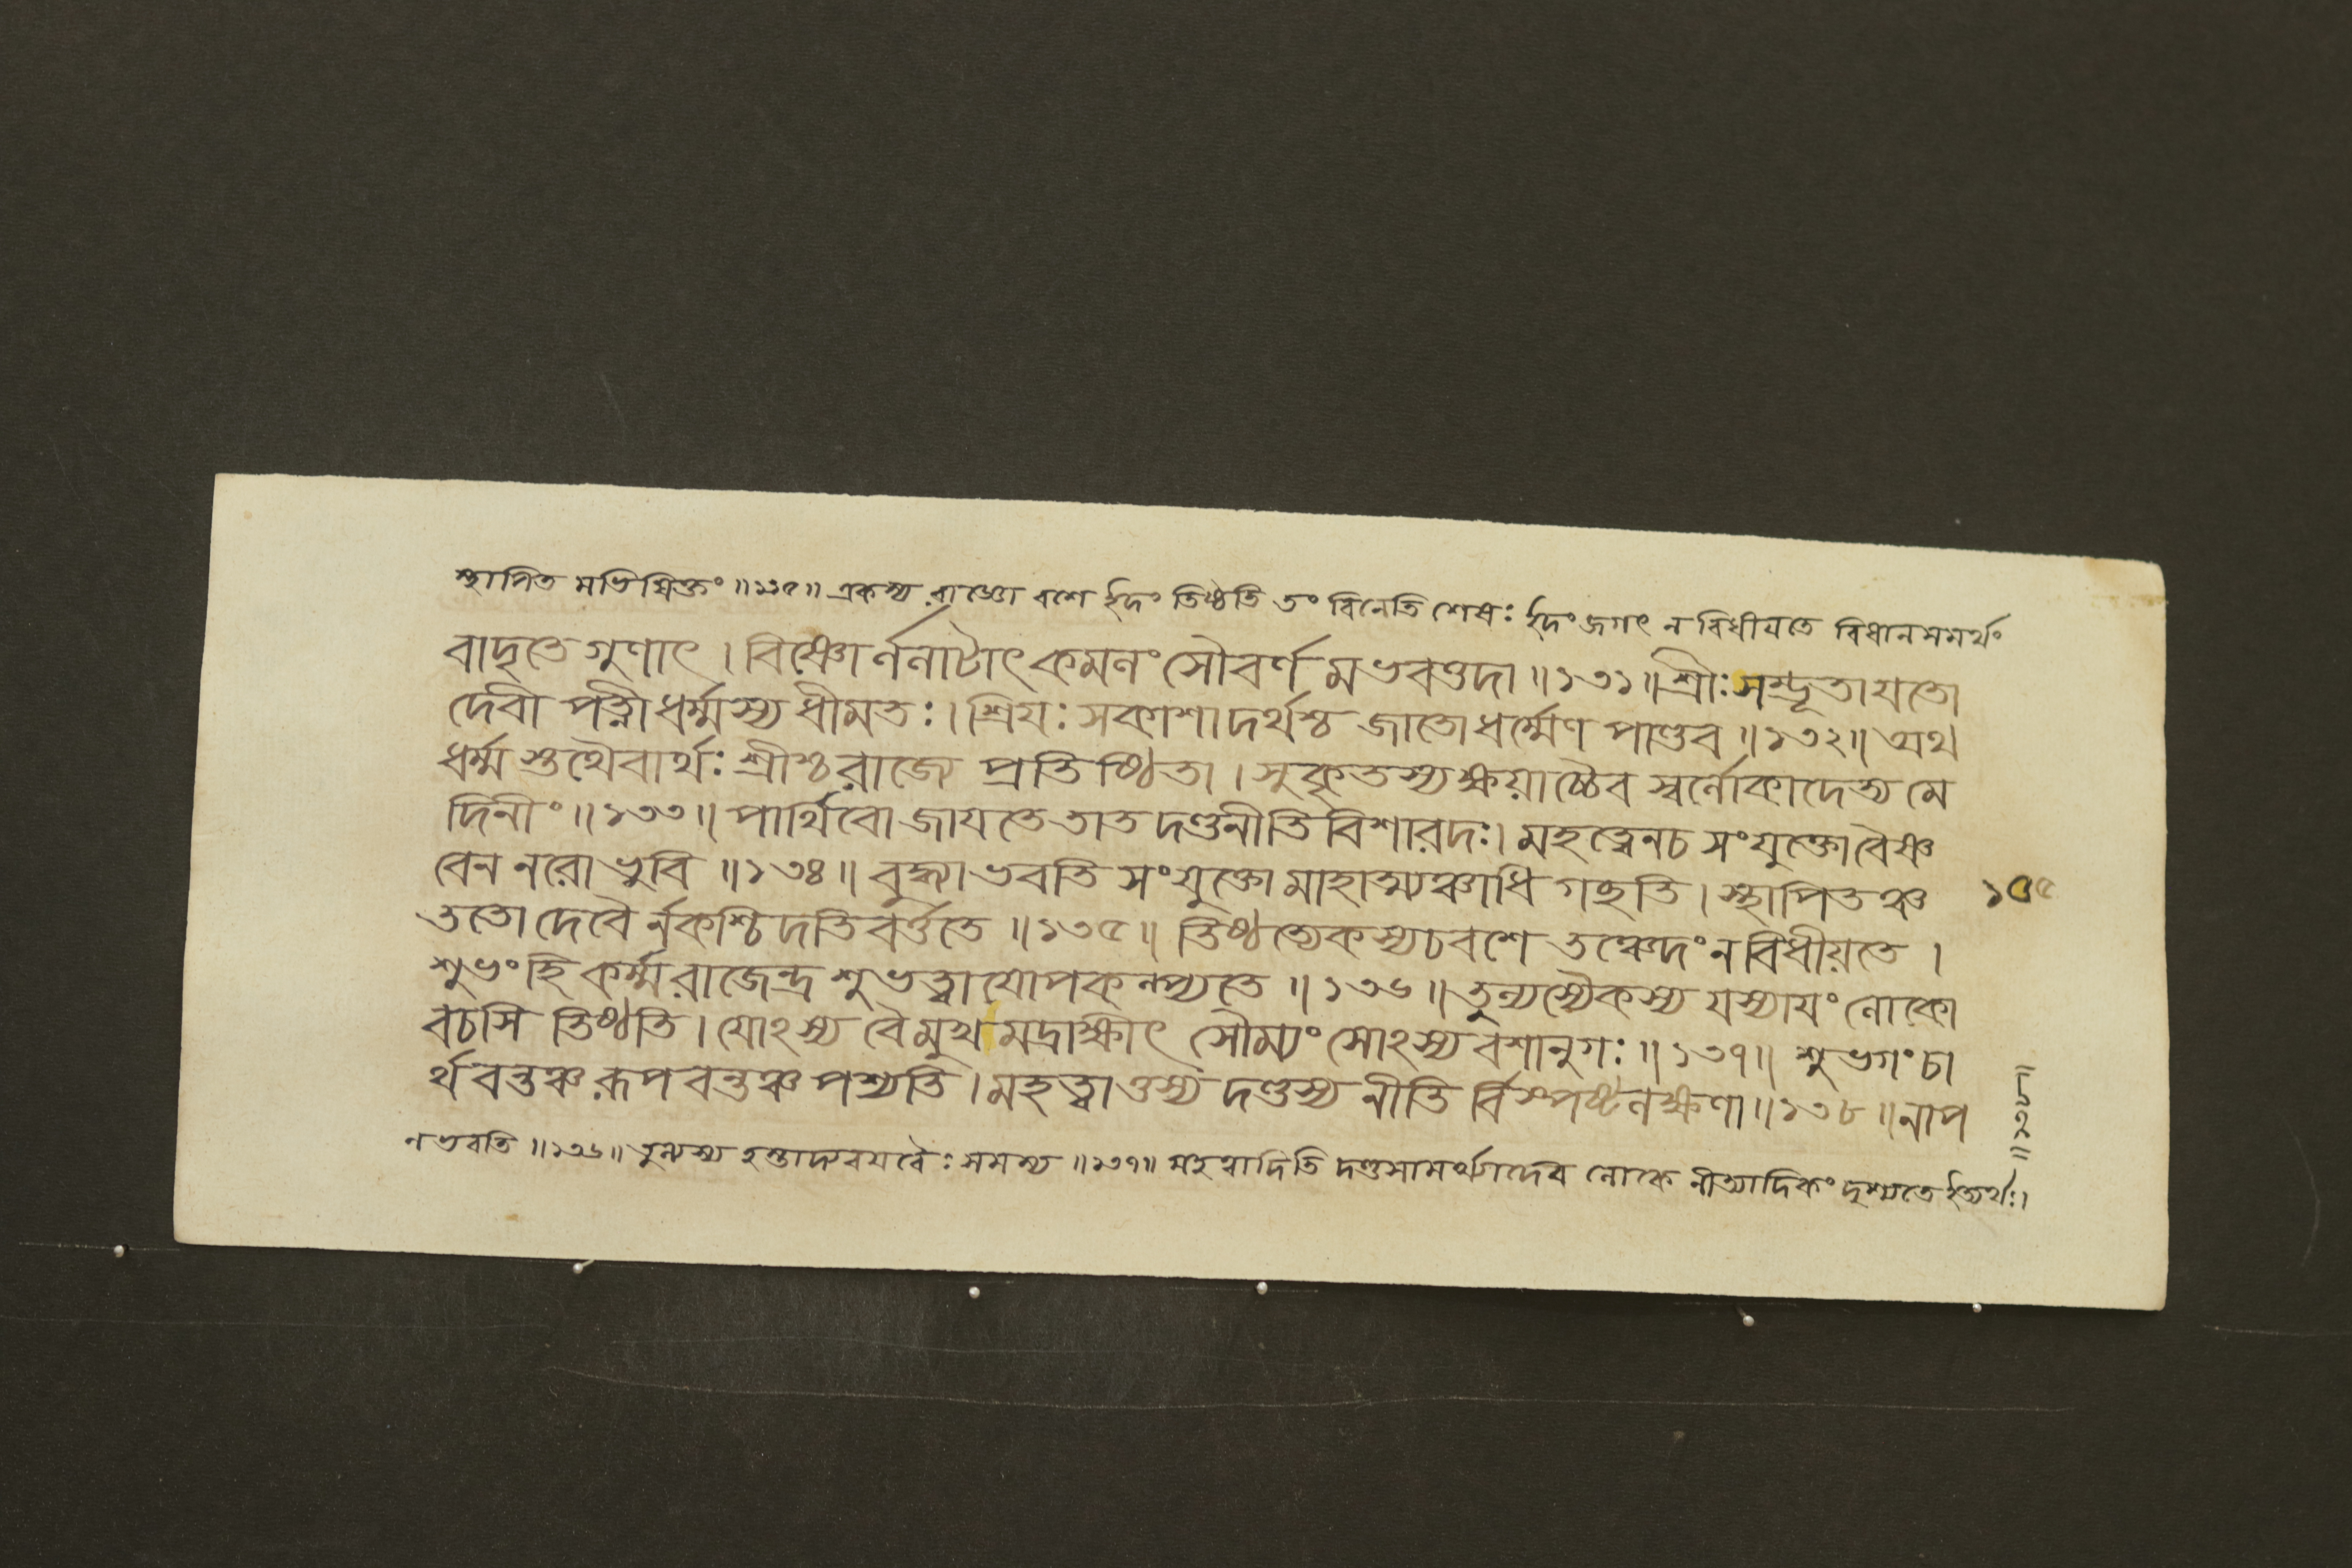 স্থাপিত মভিষিক্তং ॥১৩৫॥ একস্য রাজ্ঞো বশে ইদং তিষ্ঠতি তং বিনেতি শেষঃ ইদং জগৎ ন বিধীয়তে বিধানসমর্থং
বাদৃতে গুণাৎ । বিষ্ণোর্ললাটাৎ কমলং সৌবর্ণ মভবত্তদা ॥১৩১॥ শ্রীঃ সম্ভূতা যতো
দেবী পত্নী ধর্ম্মস্য ধীমতঃ । শ্রিযঃ সকাশা দর্থশ্চ জাতো ধর্ম্মেণ পাণ্ডব ॥১৩২॥ অথ
ধর্ম্ম স্তথৈবার্থঃ শ্রীশ্চ রাজ্যে প্রতিষ্ঠিতা । সুকৃতস্য ক্ষয়াচ্চৈব স্বর্লোকাদেত্য মে
দিনীং ॥১৩৩॥ পার্থিবো জাযতে তাত দণ্ডনীতি বিশারদঃ । মহত্ত্বেন চ সংযুক্তো বৈষ্ণ
বেন নরো ভুবি ॥১৩৪॥ বুদ্ধ্যা ভবতি সংযুক্তো মাহাত্ম্যঞ্চাধি গছতি । স্থাপিতঞ্চ
১৩৫
ততো দেবৈ র্নকশ্চিদতি বর্ত্ততে ॥১৩৫॥ তিষ্ঠত্যেকস্য চ বশে তঞ্চেদং ন বিধীয়তে ।
শুভং হি কর্ম্ম রাজেন্দ্র শুভত্বাযোপকল্প্যতে ॥১৩৬॥ তুল্যস্যৈকস্য যস্যাযং লোকো
বচসি তিষ্ঠতি । যোঽস্য বৈ মুখ মদ্রাক্ষীৎ সৌম্যং সোঽস্য বশানুগঃ ॥১৩৭॥ শুভগং চা
র্থবন্তঞ্চ রূপবন্তঞ্চ পশ্যতি । মহত্ত্বাত্তস্য দণ্ডস্য নীতি র্বিস্পষ্টলক্ষণা ॥১৩৮॥ নাপ
ল ভবতি ॥১৩৬॥ তুল্যস্য হস্তাদ্যবযবৈঃ সমস্য ॥১৩৭॥ মহত্ত্বাদিতি দণ্ডসামর্থ্যাদেব লোকে নীত্যাদিকং দৃশ্যতে ইত্যর্থঃ ।